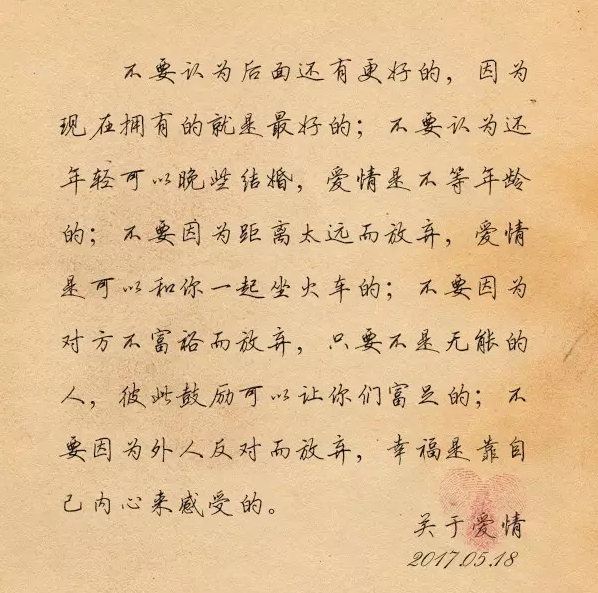 不要认为后面还有更好的，因为
现在拥有的就是最好的；不要认为还
年轻可以晚些结婚，爱情是不等年龄
的；不要因为距离太远而放弃，爱情
是可以和你一起坐火车的；不要因为
对方不富裕而放弃，只要不是无能的
人，彼此鼓励可以让你们富足的；不
要因为外人反对而放弃，幸福是靠自
己内心来感受的。
关于爱情
2017.05.18